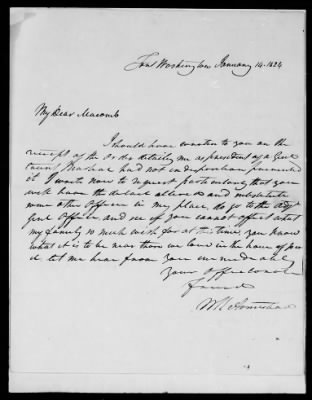 Fort Washington January 14. 1824
My Dear Macomb
I should have written to you on the
receipt of the order detailing me as president of a Genl
Court Martial had not indisposition prevented
it. I write now to request particularly that you
will have the detail altered and substitute
some other Officer in my place, do go to the Adjt
Genl Office and see if you cannot effect what
my family so much wish for at this time. you know
what it is to be near those we love in the hour of
let me hear from you immediately
Your affectionate
friend
W K Armistead